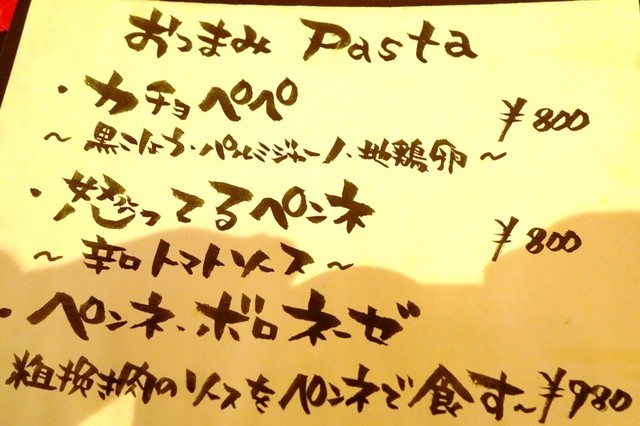 おつまみ Pasta
・カチョペペ ¥800
〜黒こしょう・パルミジャーノ・地鶏卵〜
・怒ってるペンネ ¥800
〜辛口トマトソース〜
・ペンネ・ボロネーゼ
粗挽き肉のソースをペンネで食す〜¥980